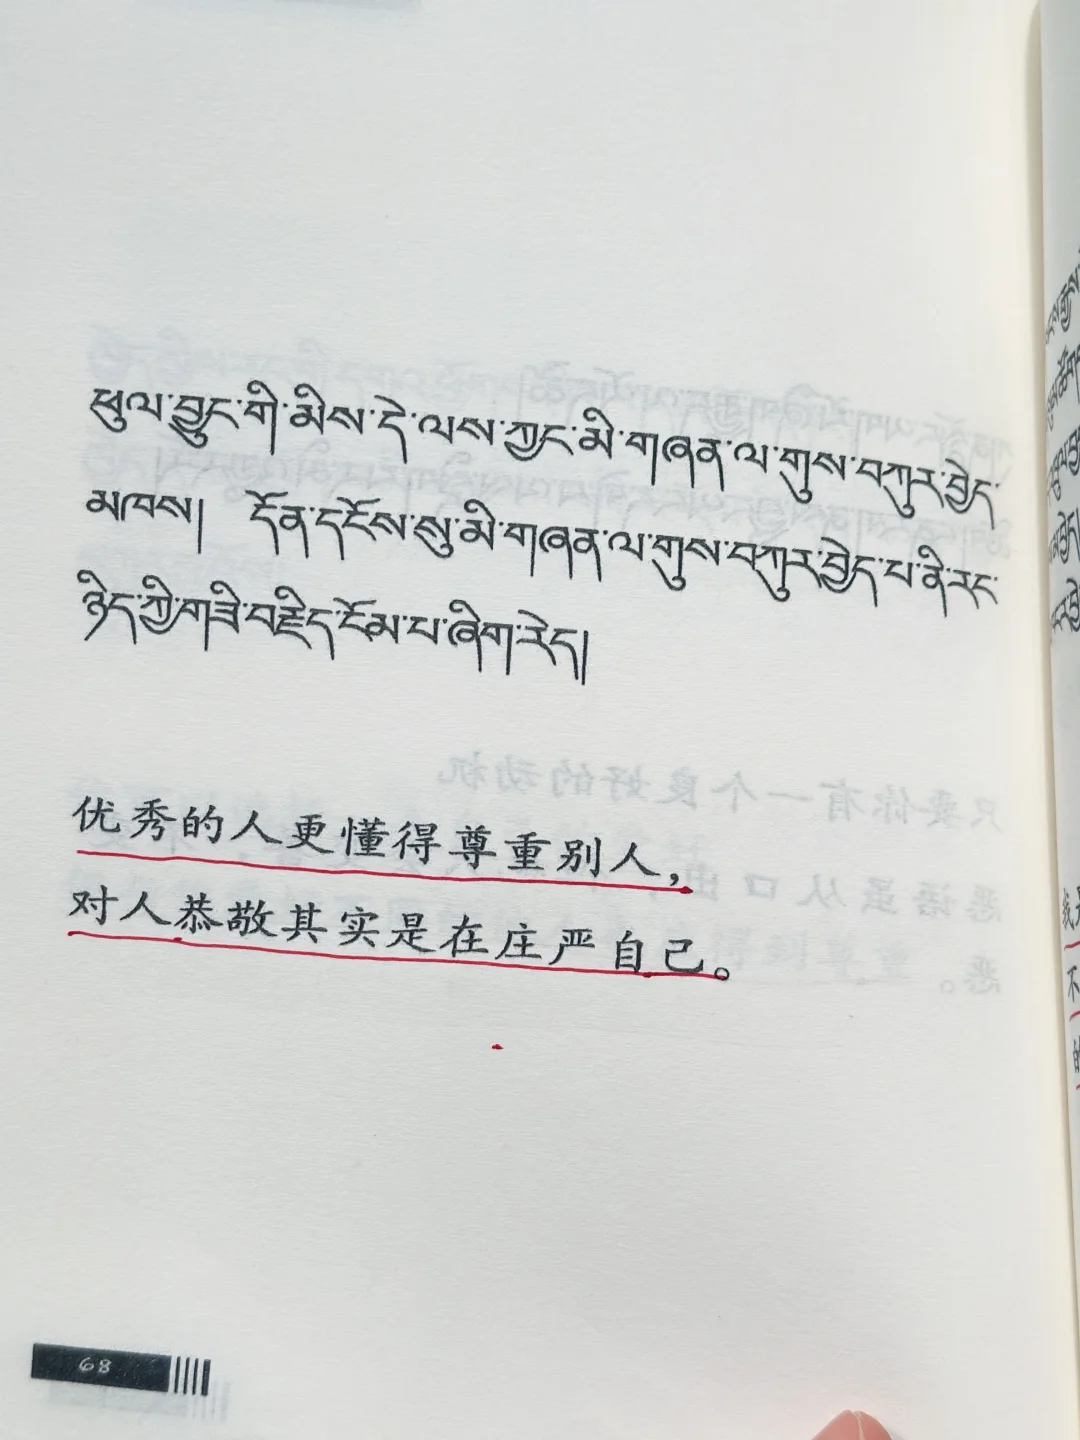 ཕུལ་བྱུང་གི་མིས་དེ་ལས་ཀྱང་མི་གཞན་ལ་གུས་བཀུར་བྱེད་
མཁས།  དོན་དངོས་སུ་མི་གཞན་ལ་གུས་བཀུར་བྱེད་པ་ནི་རང་
ཉིད་ཀྱི་གཟི་བརྗིད་ངོམ་པ་ཞིག་རེད།
优秀的人更懂得尊重别人，
对人恭敬其实是在庄严自己。
68